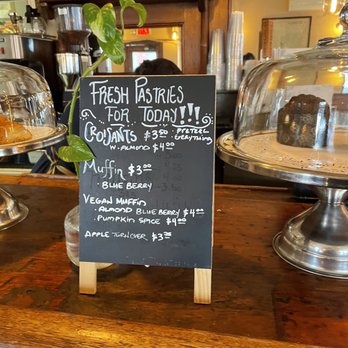 FRESH PASTRIES
FOR TODAY!!!
CROIJANTS $3.50 · PRETZEL
· EVERYTHING
W. ALMOND $4.00
MUFFIN $3.00
· BLUE BERRY
VEGAN MUFFIN
· ALMOND BLUEBERRY $4.00
· PUMPKIN SPICE $4.00
APPLE TURNOVER $3.50